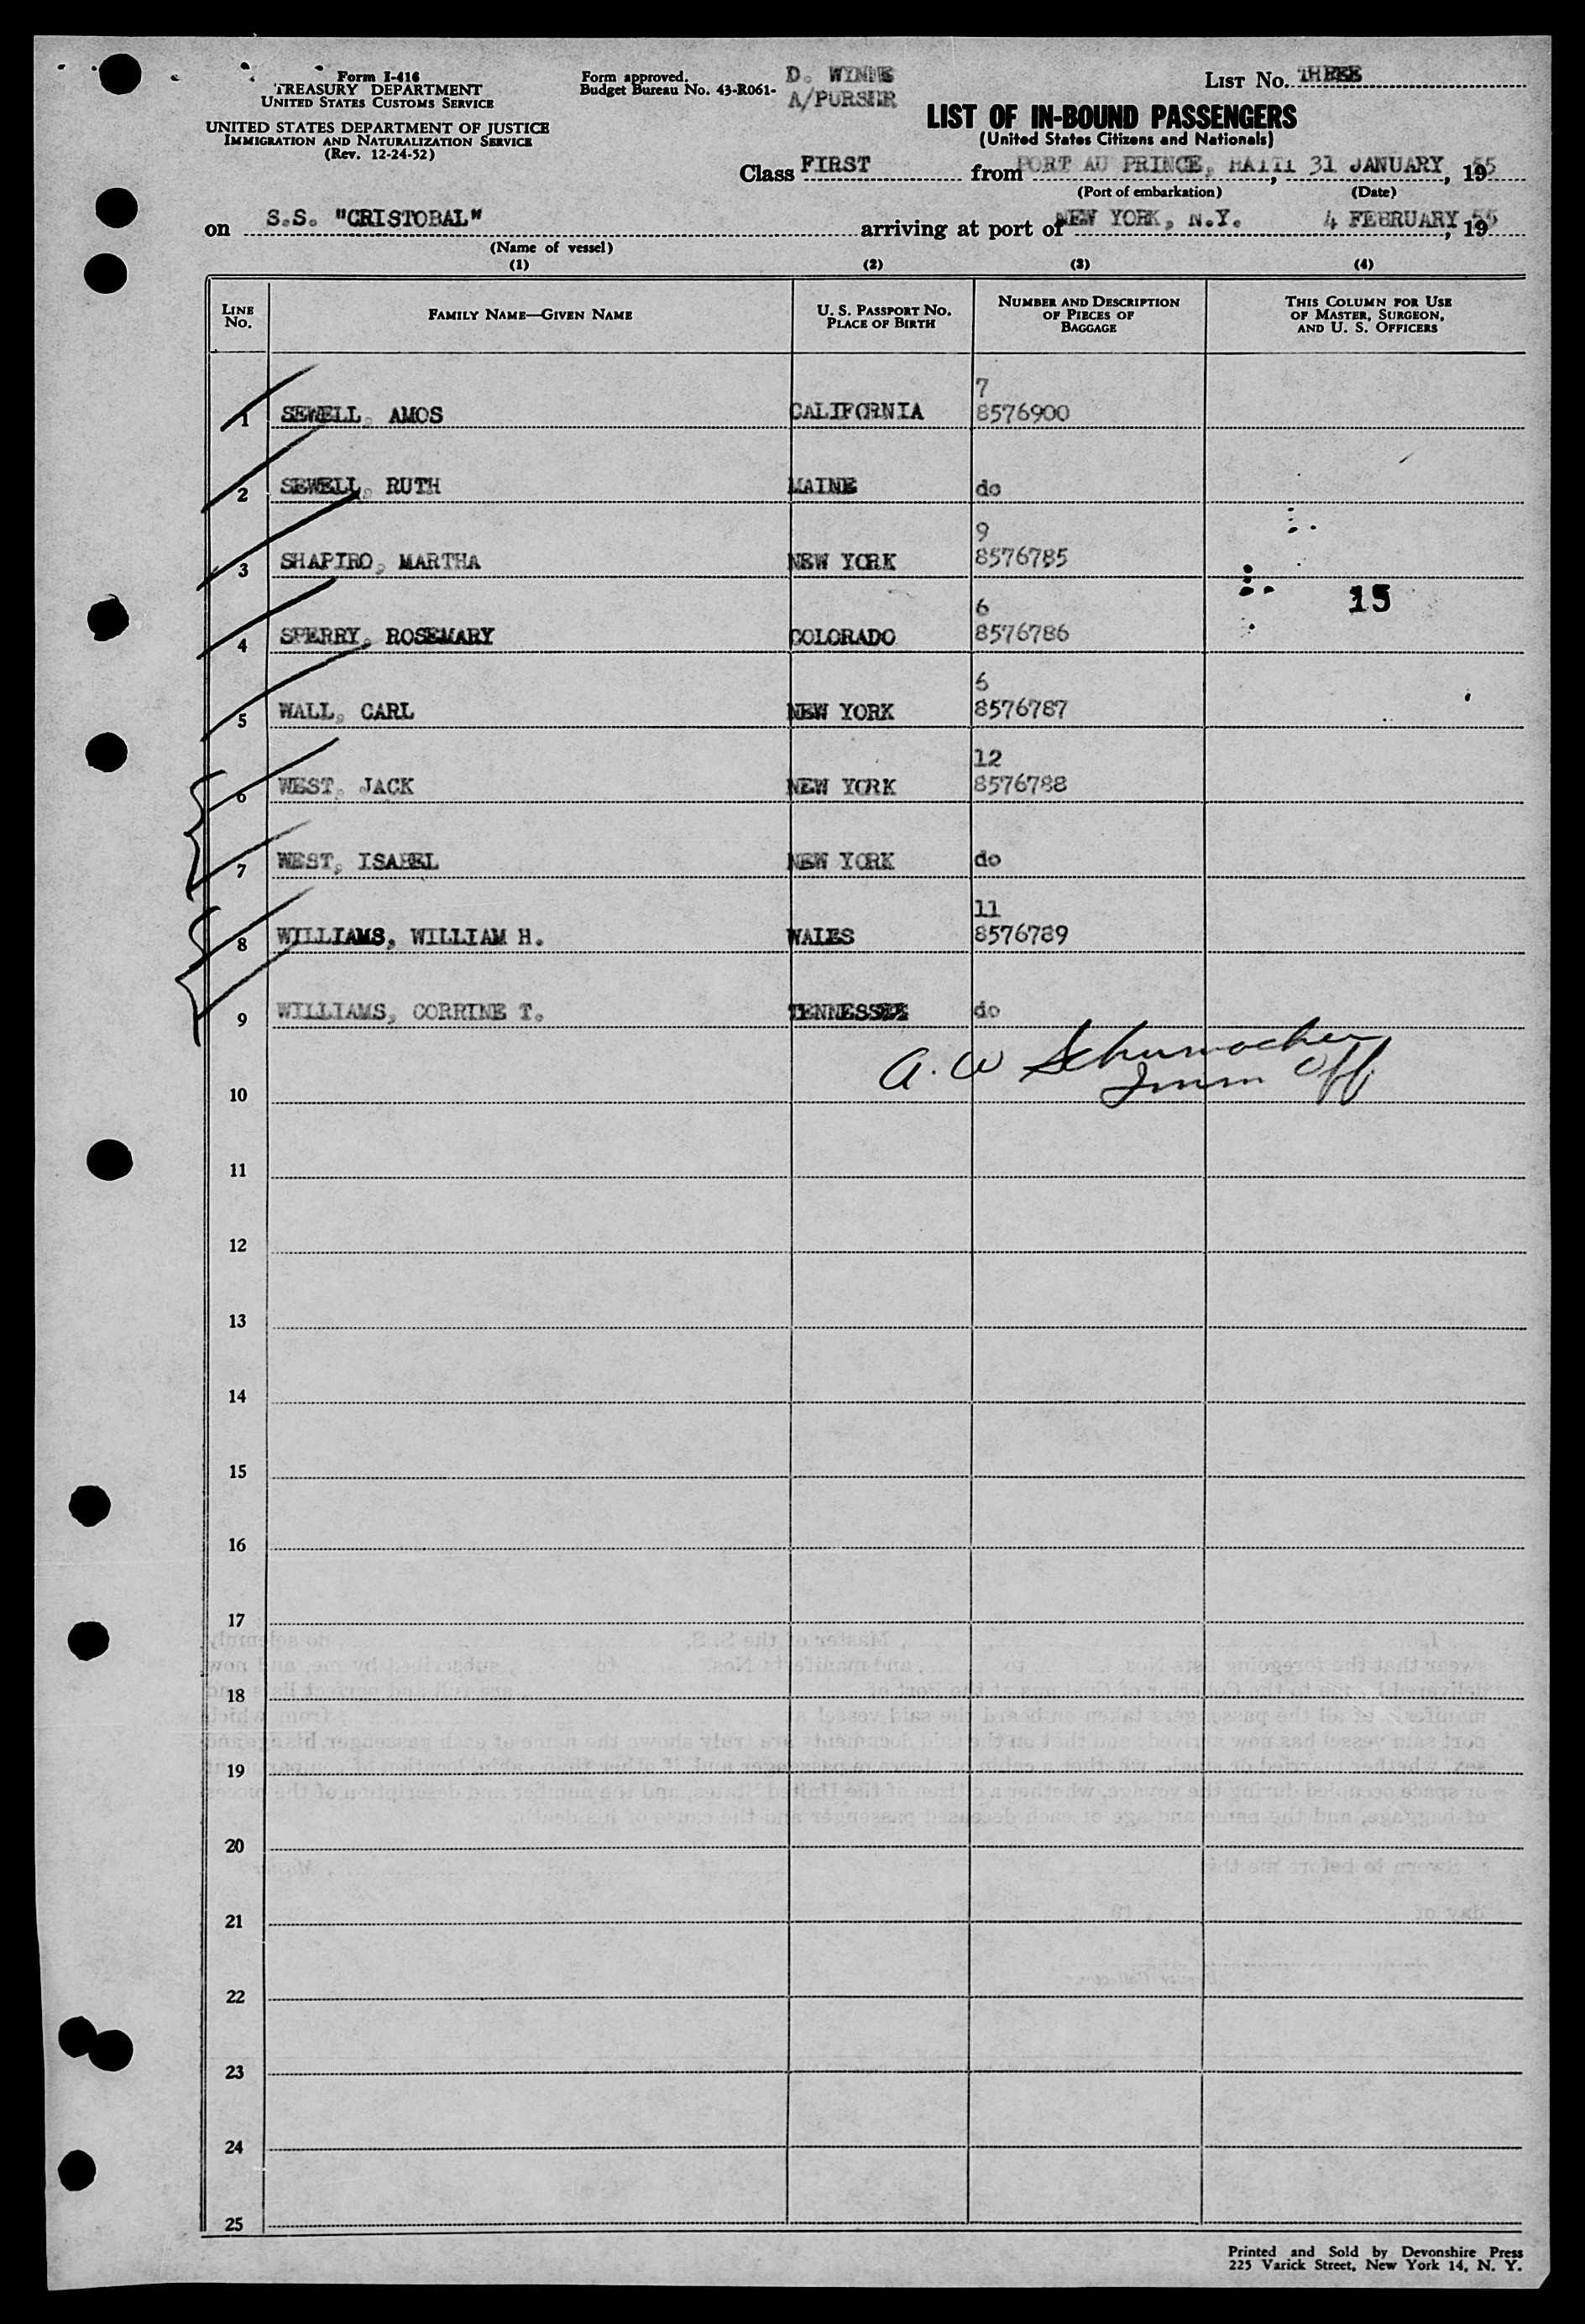 Form I-416
TREASURY DEPARTMENT
UNITED STATES CUSTOMS SERVICE
UNITED STATES DEPARTMENT OF JUSTICE
IMMIGRATION AND NATURALIZATION SERVICE
(Rev. 12-24-52)
Form approved.
Budget Bureau No. 43-R061-
D. WYNNE
A/PURSER
LIST NO. THREE
LIST OF IN-BOUND PASSENGERS
(United States Citizens and Nationals)
Class FIRST from PORT AU PRINCE, HAITI, 31 JANUARY, 1955
(Port of embarkation) (Date)
on S.S. "CRISTOBAL" arriving at port of NEW YORK, N.Y. 4 FEBRUARY, 1955
(Name of vessel)
(1) (2) (3) (4)
LINE NO. FAMILY NAME—GIVEN NAME U. S. PASSPORT NO. PLACE OF BIRTH NUMBER AND DESCRIPTION OF PIECES OF BAGGAGE THIS COLUMN FOR USE OF MASTER, SURGEON, AND U. S. OFFICERS
7
1 SEWELL, AMOS CALIFORNIA 8576900
2 SEWELL, RUTH MAINE do
9
3 SHAPIRO, MARTHA NEW YORK 8576785
15
6
4 SPERRY, ROSEMARY COLORADO 8576786
6
5 WALL, CARL NEW YORK 8576787
12
6 WEST, JACK NEW YORK 8576788
7 WEST, ISABEL NEW YORK do
11
8 WILLIAMS, WILLIAM H. WALES 8576789
9 WILLIAMS, CORRINE T. TENNESSEE do
A. W Schumacher
Imm Off
10
11
12
13
14
15
16
17
18
19
20
21
22
23
24
25
Printed and Sold by Devonshire Press
225 Varick Street, New York 14, N. Y.